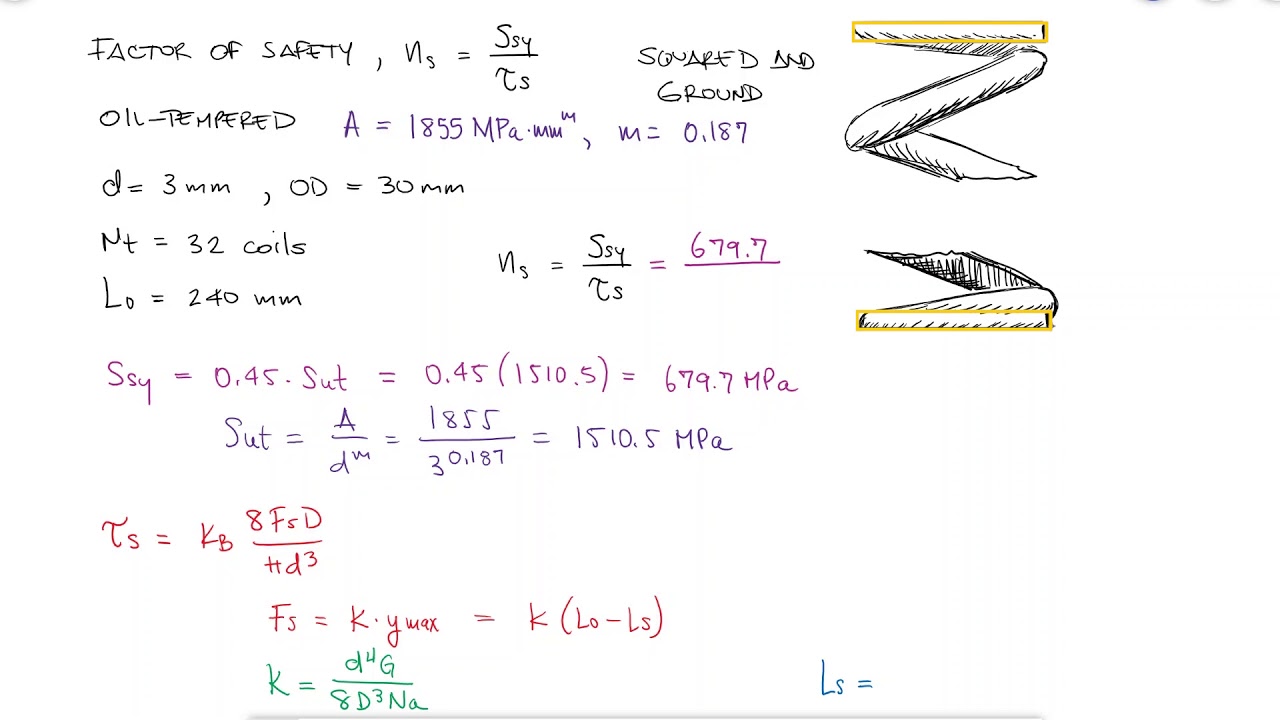 FACTOR OF SAFETY, ns = Ssy/τs
SQUARED AND GROUND
OIL-TEMPERED A = 1855 MPa·mm^m, m = 0.187
d = 3 mm, OD = 30 mm
Nt = 32 coils
L0 = 240 mm
ns = Ssy/τs = 679.7
Ssy = 0.45·Sut = 0.45(1510.5) = 679.7 MPa
Sut = A/d^m = 1855/3^0.187 = 1510.5 MPa
τs = KB 8FsD/πd^3
Fs = K·ymax = K(L0-Ls)
K = d^4G/8D^3Na
Ls =